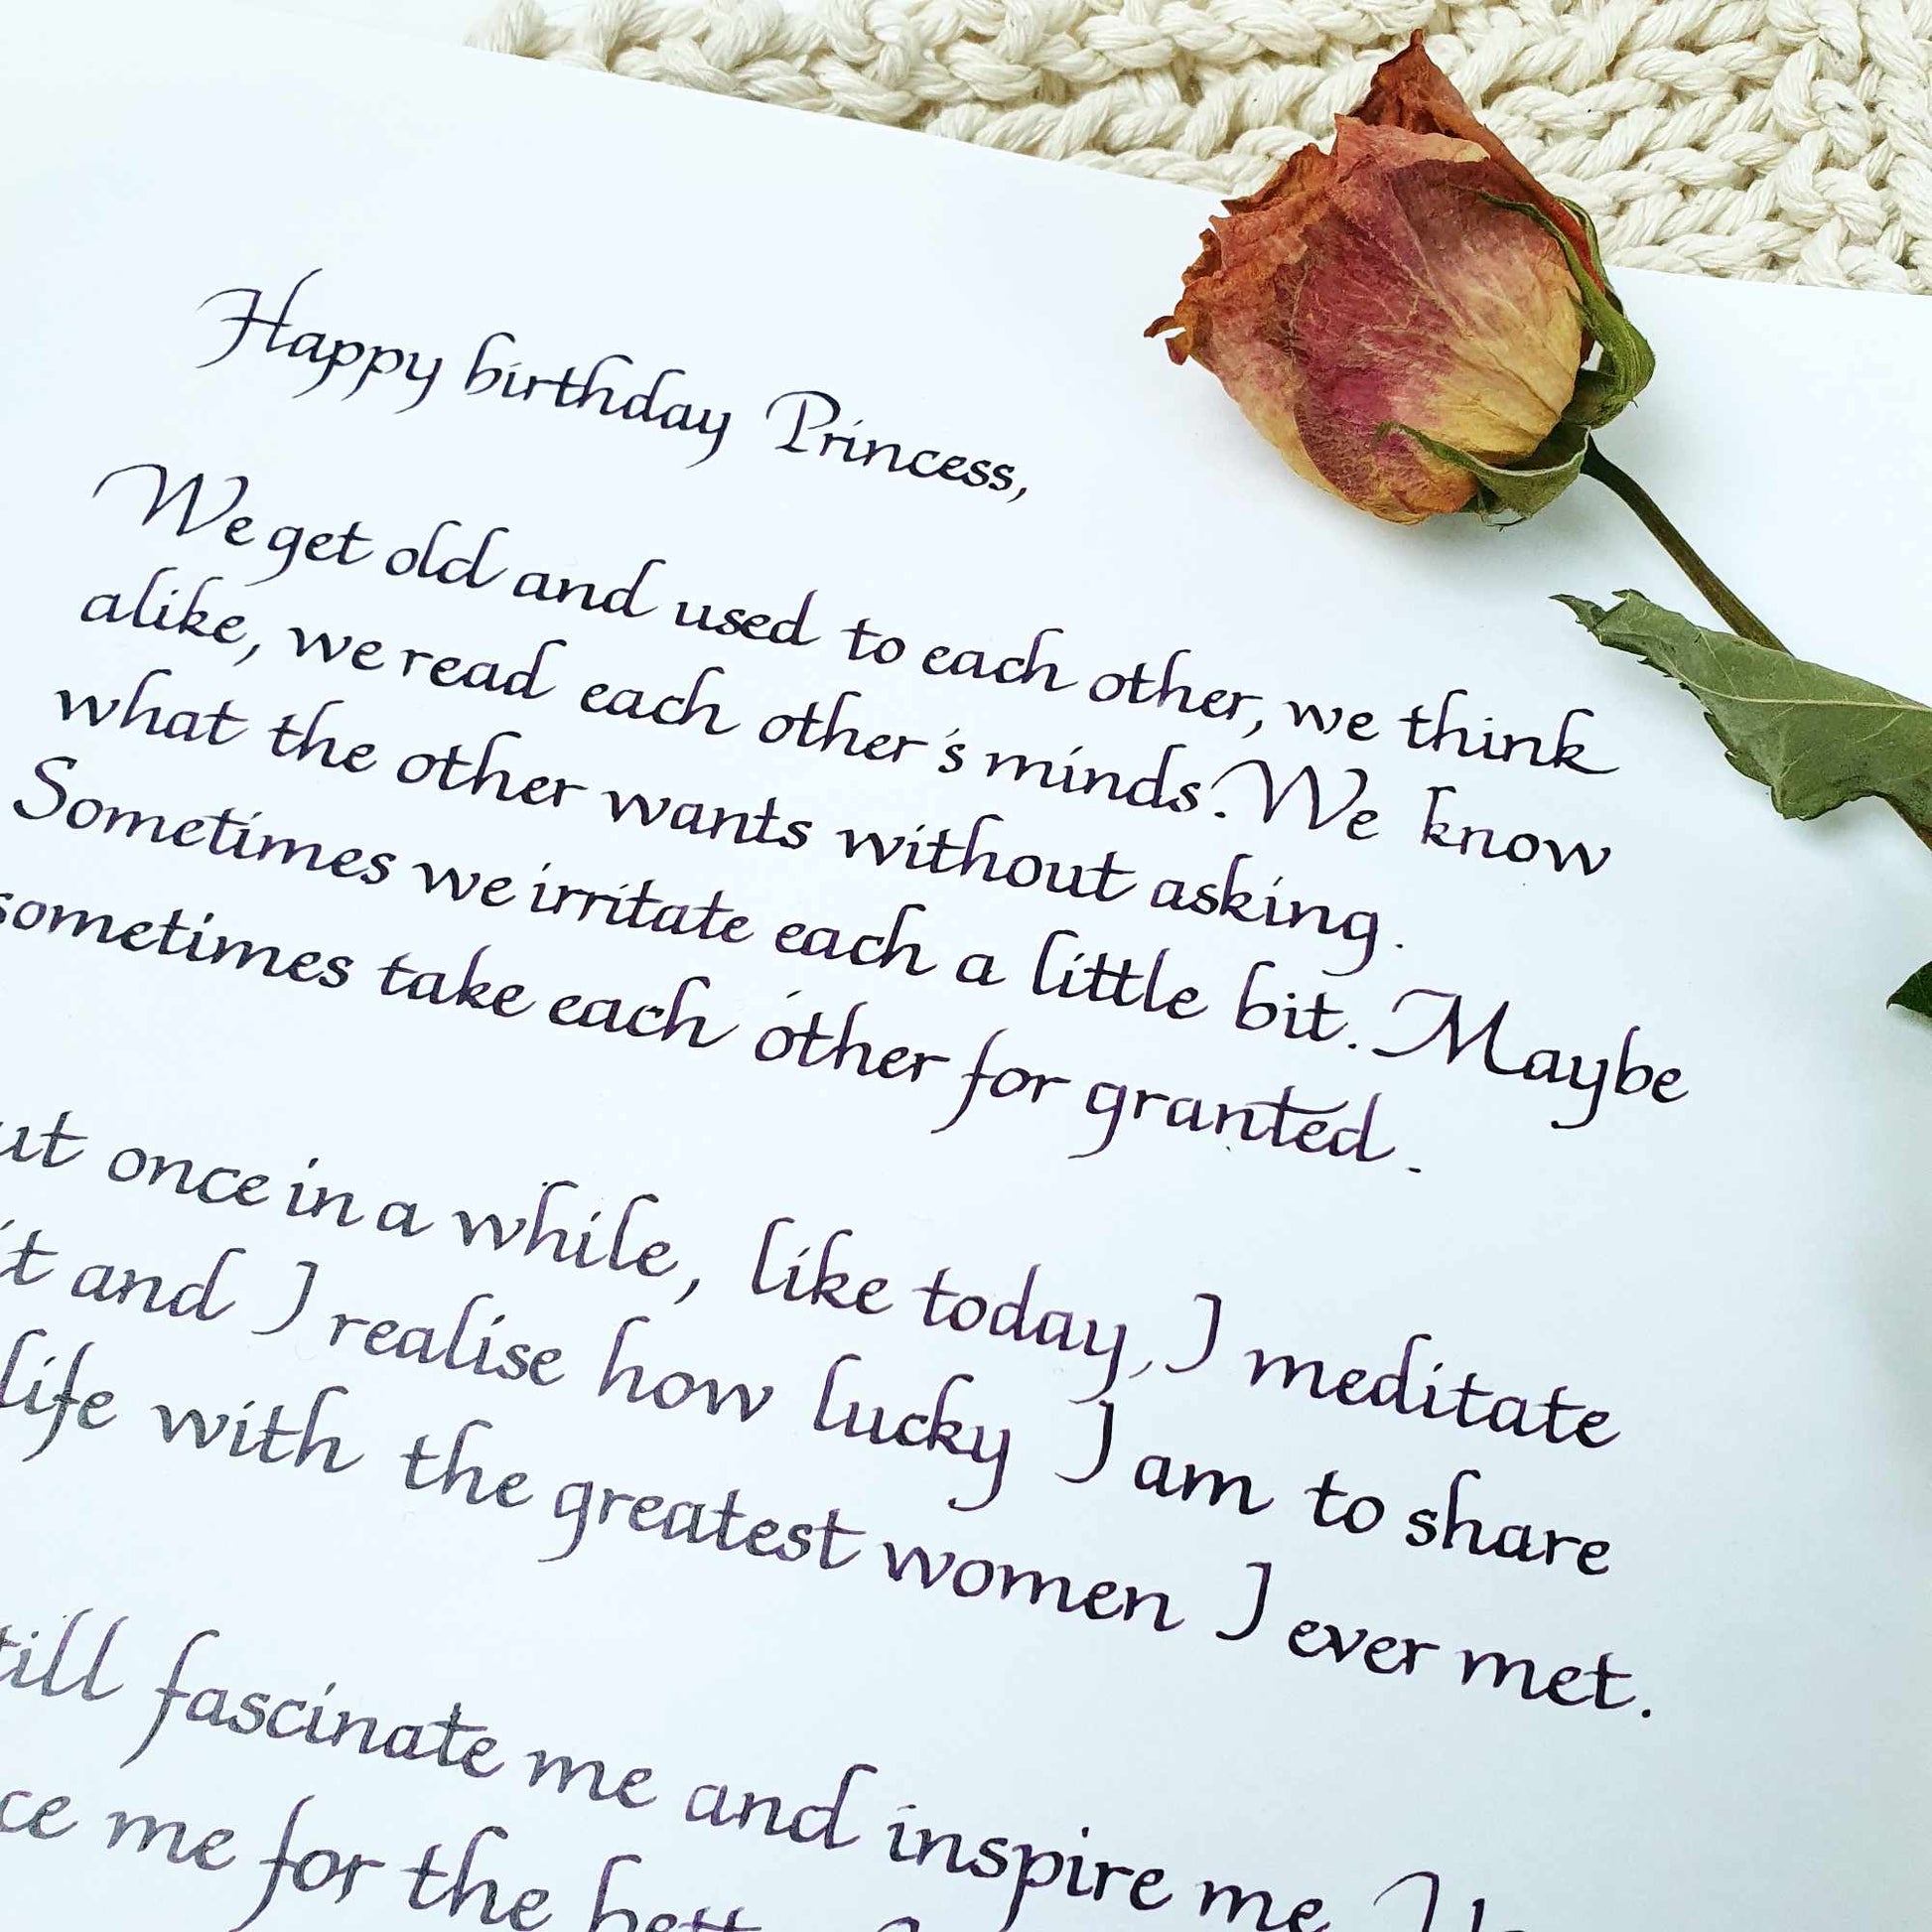 Happy birthday Princess,
We get old and used to each other, we think
alike, we read each other's minds. We know
what the other wants without asking.
Sometimes we irritate each a little bit. Maybe
sometimes take each other for granted.
ut once in a while, like today, I meditate
it and I realise how lucky I am to share
life with the greatest women I ever met.
till fascinate me and inspire me.
ce me for the